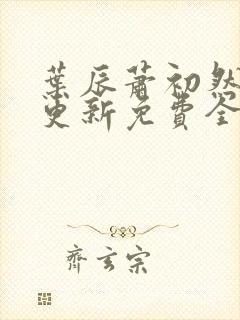 葉辰蕭初然
更新免費全
齊玄宗